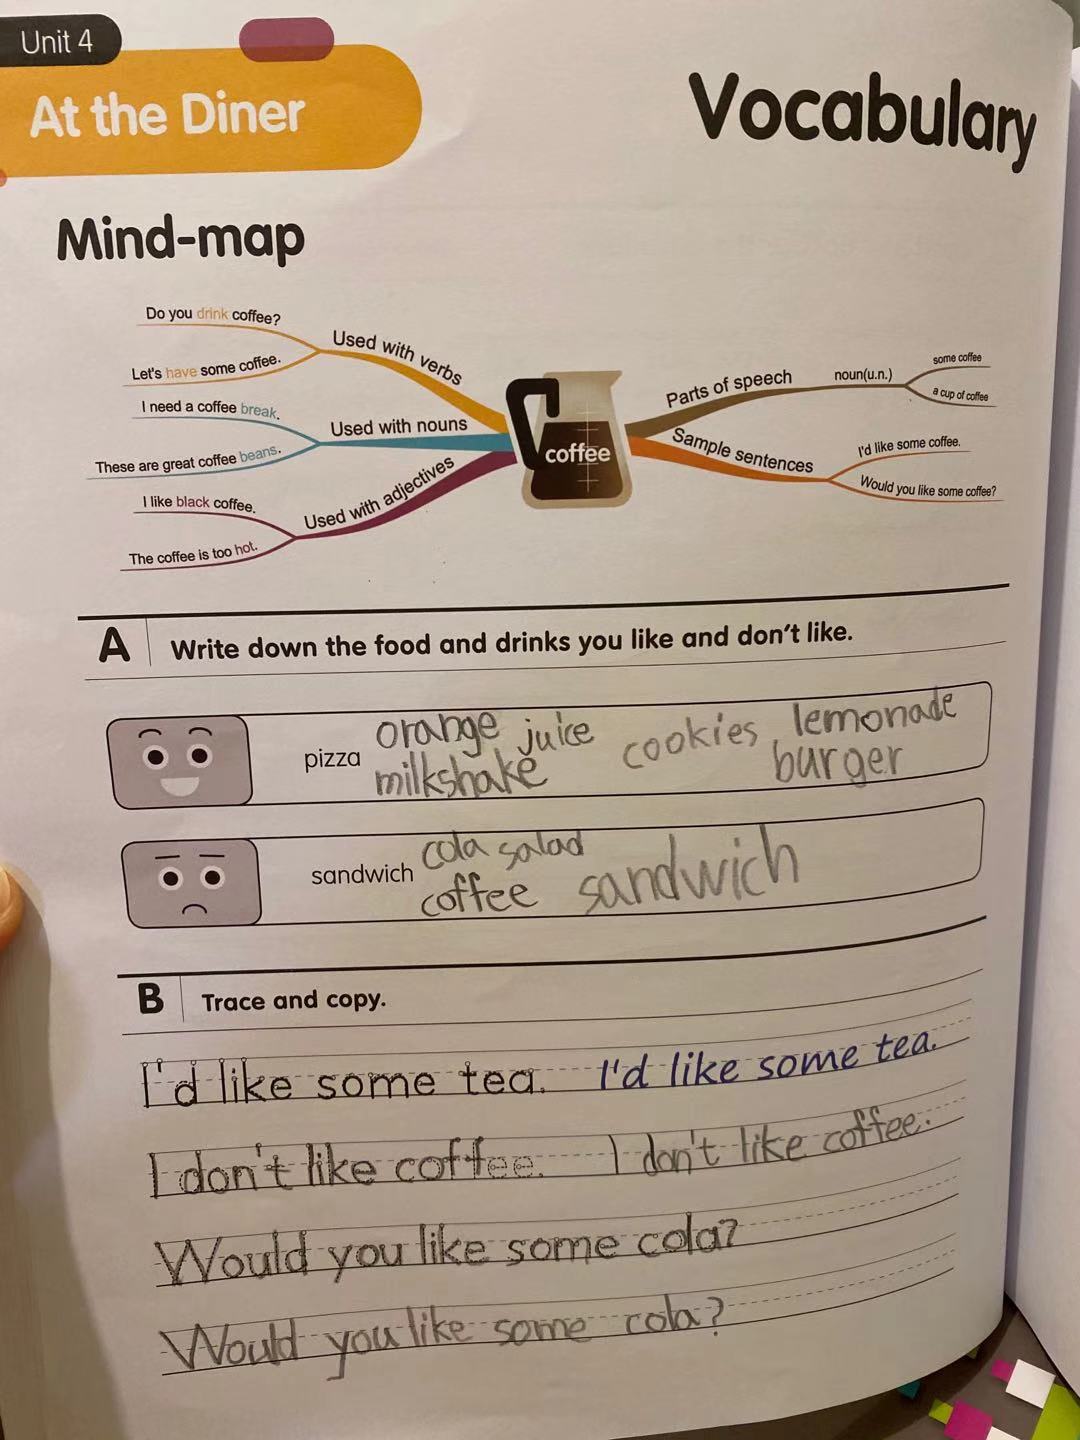 Unit 4
At the Diner
Vocabulary
Mind-map
Do you drink coffee?
Let's have some coffee.
Used with verbs
I need a coffee break.
These are great coffee beans.
Used with nouns
I like black coffee.
The coffee is too hot.
Used with adjectives
coffee
Parts of speech
noun(u.n.)
some coffee
a cup of coffee
Sample sentences
I'd like some coffee.
Would you like some coffee?
A Write down the food and drinks you like and don't like.
pizza orange juice cookies lemonade
milkshake burger
sandwich cola salad
coffee sandwich
B Trace and copy.
I'd like some tea. I'd like some tea.
I don't like coffee. I don't like coffee.
Would you like some cola?
Would you like some cola?